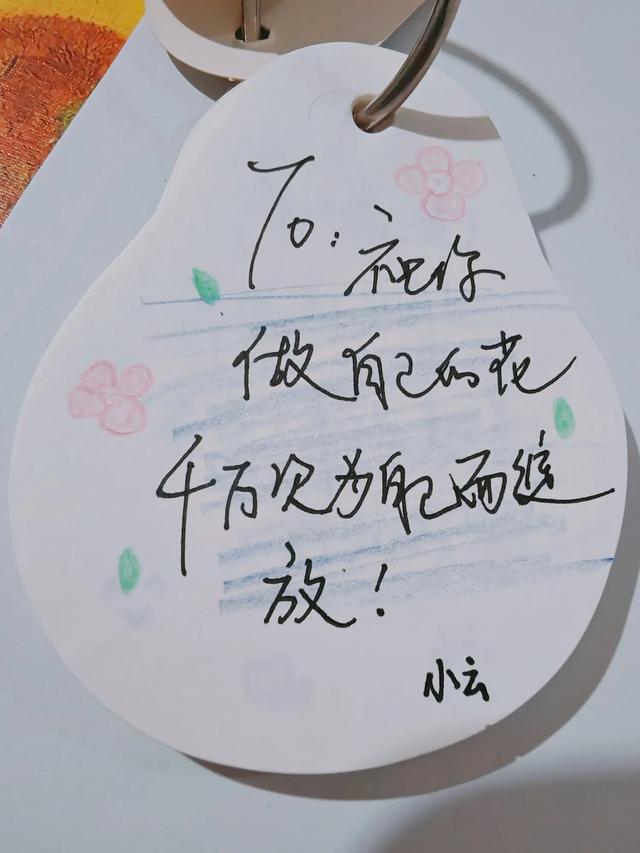 To: 祝你
做自己的花
千万次为自己而绽
放!
小云